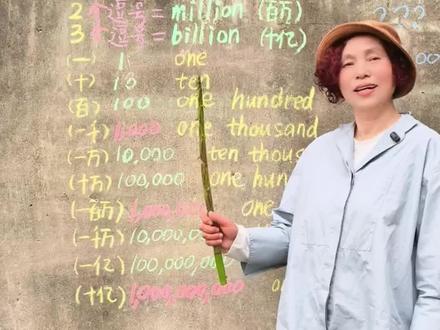 2个逗号= million (百万)
3个逗号= billion (十亿)
(一) 1 one
(十) 10 ten
(百) 100 one hundred
(一千) 1,000 one thousand
(一万) 10,000 ten thous
(十万) 100,000 one hun
(一百万) 1,000,000 one
(一千万) 10,000,0
(一亿) 100,000,000
(十亿) 1,000,000,000